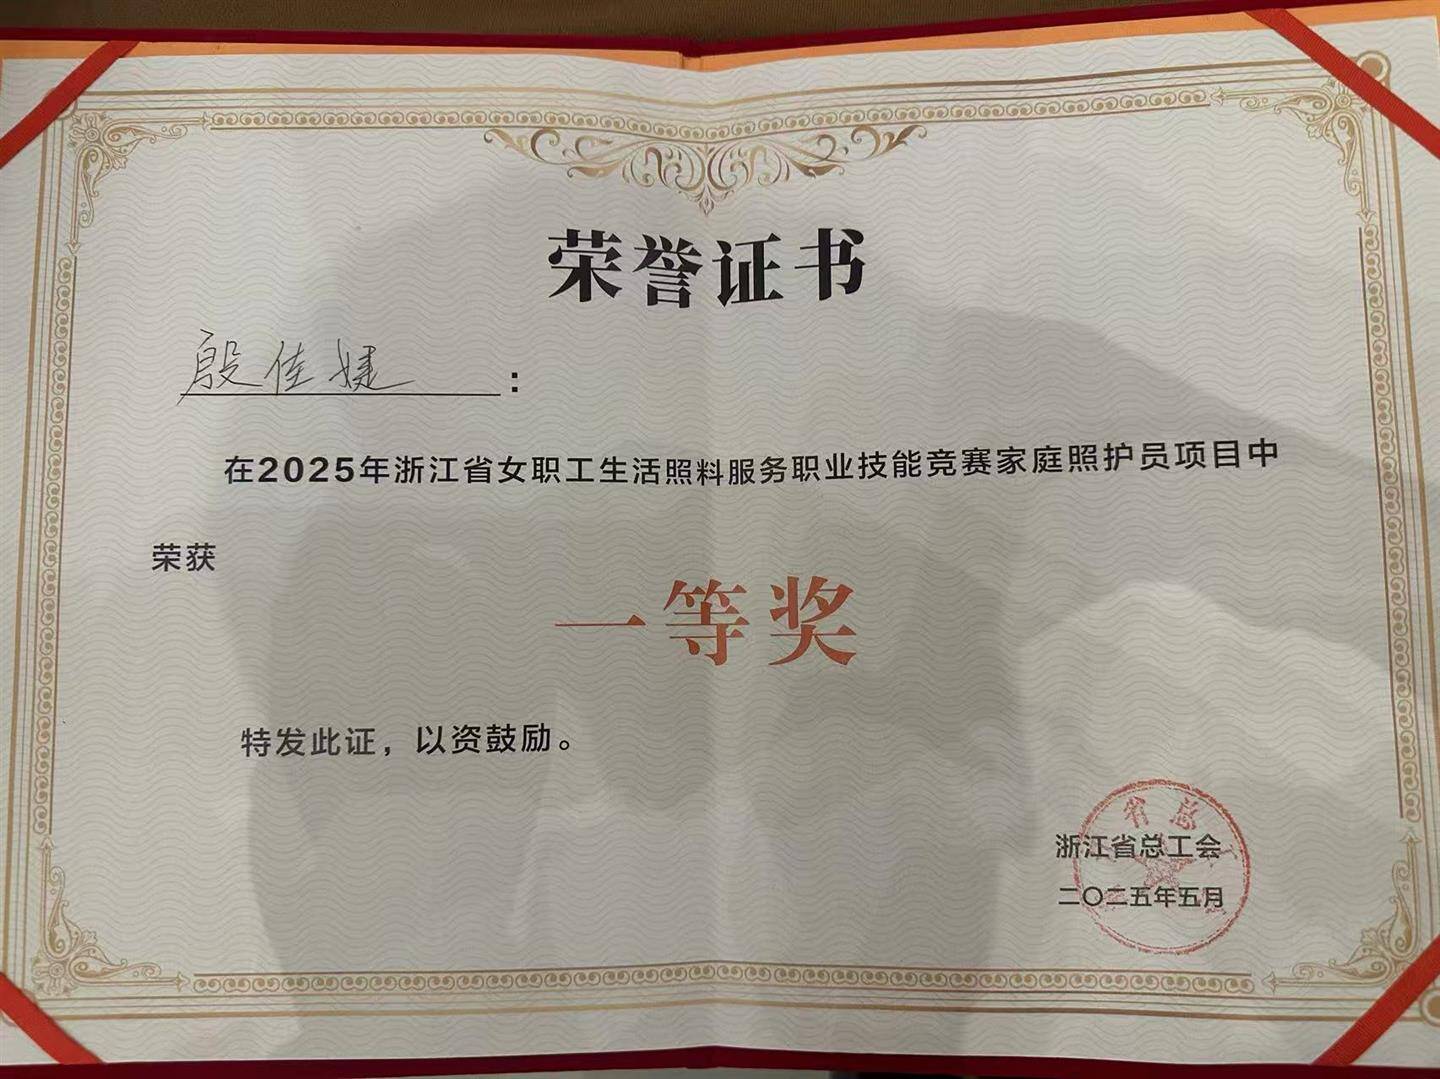 荣誉证书
殷佳婕：
在2025年浙江省女职工生活照料服务职业技能竞赛家庭照护员项目中
荣获
一等奖
特发此证，以资鼓励。
省总
浙江省总工会
二〇二五年五月